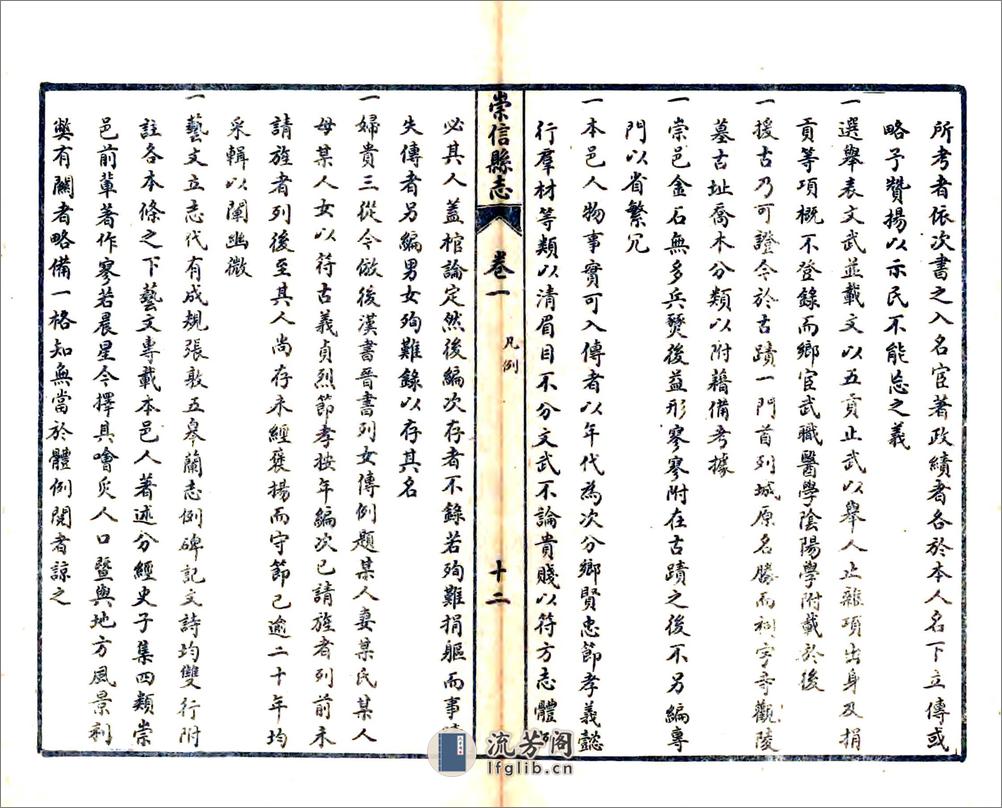 所考者依次書之入名宦著政績者各於本人名下立傳或
略予贊揚以示民不能忘之義
一選舉表文武並載文以五貢止武以舉人止雜項出身及捐
貢等項概不登錄而鄉宦武職醫學陰陽學附載於後
一援古乃可證今於古蹟一門首列城原名勝而祠宇寺觀陵
墓古址喬木分類以附藉備考據
一崇邑金石無多兵燹後益形寥寥附在古蹟之後不另編專
門以省繁冗
一本邑人物事實可入傳者以年代為次分鄉賢忠節孝義懿
行羣材等類以清眉目不分文武不論貴賤以符方志體
崇信縣志
卷一
凡例
十二
必其人蓋棺論定然後編次存者不錄若殉難捐軀而事
失傳者另編男女殉難錄以存其名
一婦貴三從今倣後漢書晉書列女傳例題某人妻某氏某人
母某人女以符古義貞烈節孝按年編次已請旌者列前未
請旌者列後至其人尚存未經褒揚而守節已逾二十年均
采輯以闡幽微
一藝文立志代有成規張敦五皋蘭志例碑記文詩均雙行附
註各本條之下藝文專載本邑人著述分經史子集四類崇
邑前輩著作寥若晨星今擇其噲炙人口暨與地方風景利
獘有關者略備一格知無當於體例閱者諒之
流芳閣
lfglib.cn